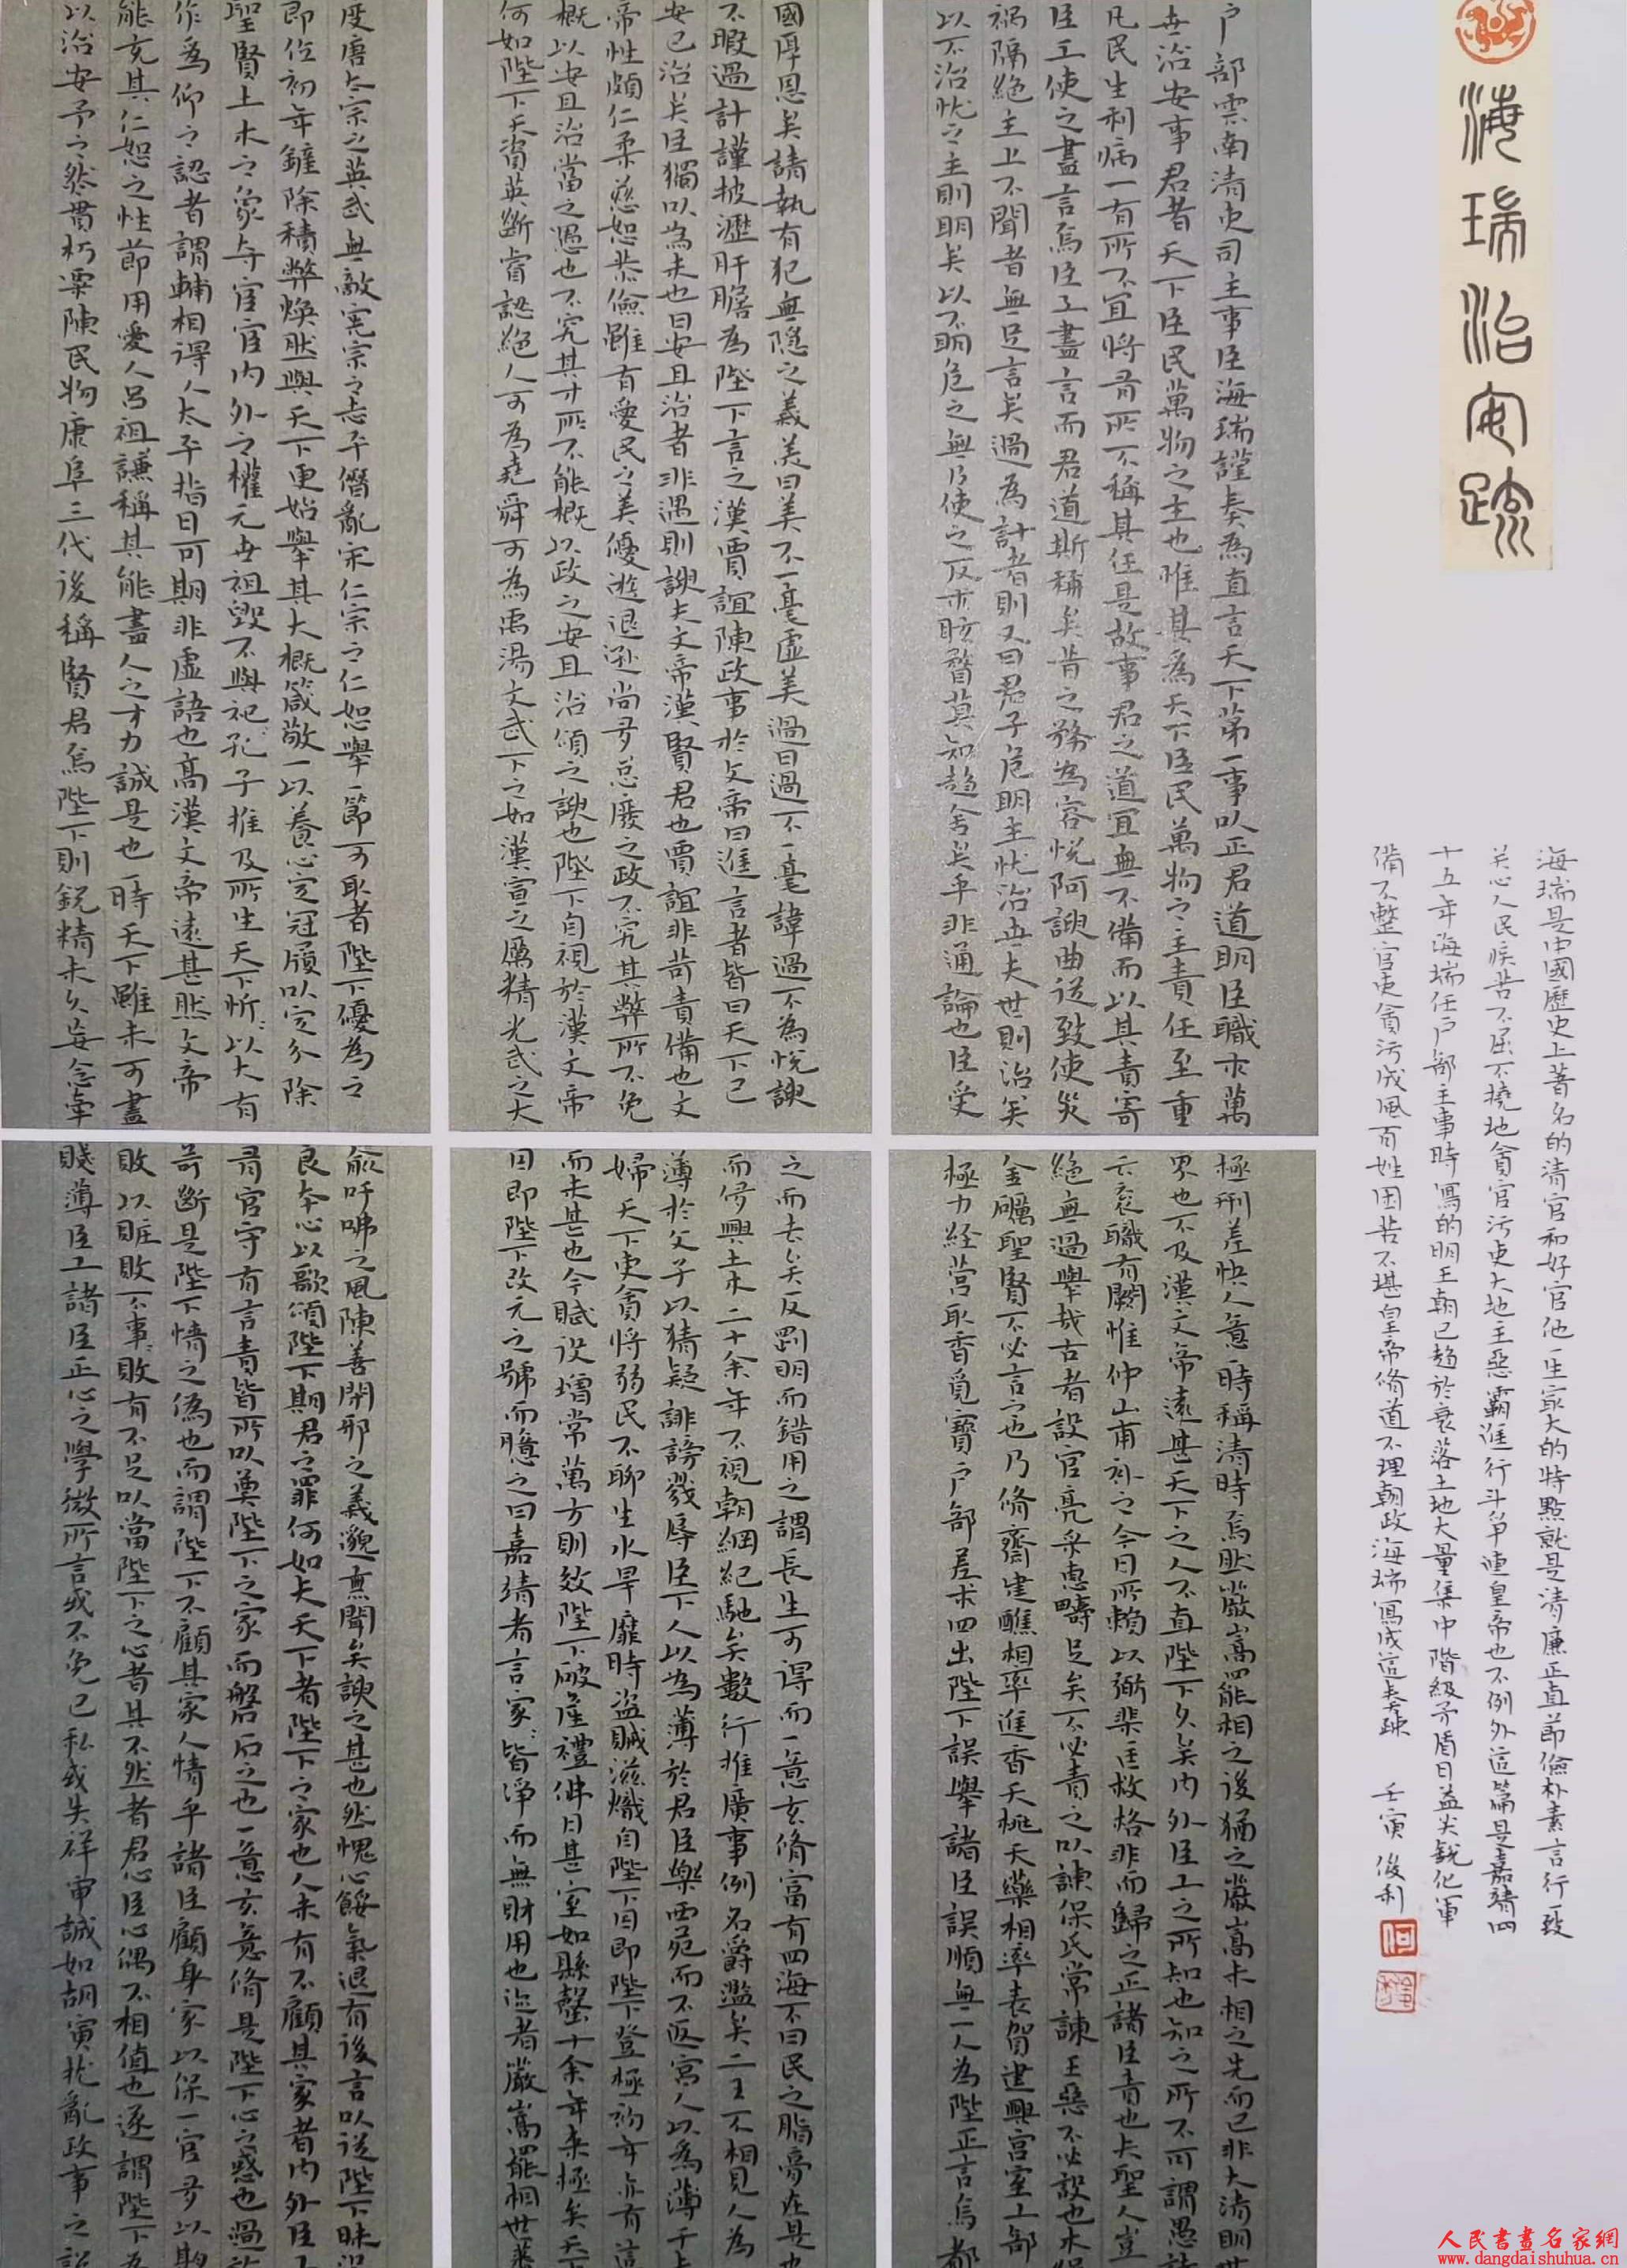 海瑞治安疏
海瑞是中國歷史上著名的清官和好官他一生最大的特點就是清廉正直節儉朴素言行一致
关心人民疾苦不屈不撓地貪官污吏大地主惡霸進行斗爭連皇帝也不例外這篇是嘉靖四
十五年海瑞任户部主事時寫的明王朝已趋於衰落土地大量集中階級矛盾日益尖銳化軍
備不整官吏貪污成風百姓困苦不堪皇帝脩道不理朝政海瑞寫成這奏疎 壬寅 俊利
户部雲南清吏司主事臣海瑞謹奏為直言天下第一事以正君道明臣職求萬
世治安事君者天下臣民萬物之主也惟其為天下臣民萬物之主責任至重
凡民生利病一有所不宜將有所不稱其任是故事君之道宜無不備而以其責寄
臣工使之盡言焉臣工盡言而君道斯稱矣昔之務為容悅阿諛曲送致使災
禍隔絕主上不聞者無足言矣過為計者則又曰君子危明主忧治世夫世則治矣
以不治忧之主則明矣以不明危之無乃使之反求眩瞀莫知趨舍矣乎非通論也臣受
國厚恩矣請執有犯無隱之義美曰美不一毫虛美過曰過不一毫諱過不為悅諛
不暇過計謹披瀝肝膽為陛下言之漢賈誼陳政事於文帝曰進言者皆曰天下已
安已治矣臣獨以為未也曰安且治者非遇則諛夫文帝漢賢君也賈誼非苛責備也文
帝性頗仁柔慈恕恭儉雖有愛民之美優遊退遜尚多怠廢之政不究其弊所不免
概以安且治當之愚也不究其才所不能概以政之安且治頌之諛也陛下自視於漢文帝
何如陛下天資英斷睿識絕人可為堯舜可為禹湯文武下之如漢宣之厲精光武之大
度唐太宗之英武無敵憲宗之志平僭亂宋仁宗之仁恕舉一節可取者陛下優為之
即位初年鏟除積弊煥然與天下更始舉其大概箴敬一以養心定冠履以定分除
聖賢土木之象与宦官內外之權元世祖毀不與祀孔子推及所生天下忻忻以大有
作為仰之識者謂輔相得人太平指日可期非虛語也高漢文帝遠甚然文帝
能充其仁恕之性節用愛人吕祖謙稱其能盡人之才力誠是也一時天下雖未可盡
以治安予之然貫朽粟陳民物康阜三代後稱賢君焉陛下則銳精未久妄念牵
極刑差快人意一時稱清時焉然嚴嵩罷相之後猶之嚴嵩未相之先而已非大清明世
界也不及漢文帝遠甚天下之人不直陛下久矣內外臣工之所知也知之所不可謂愚詩
云衮職有闕惟仲山甫补之今日所賴以弼棐匡救格非而歸之正諸臣責也夫聖人豈
絕無過舉哉古者設官亮采惠疇足矣不必責之以諫保氏常諫王惡不必設也木繩
金礪聖賢不必言之也乃脩齋建醮相率進香天桃天藥相率表賀建興宮室工部
極力經营取香覓寶户部差求四出陛下誤舉諸臣誤順無一人為陛正言焉都
之而去矣反剛明而錯用之謂長生可得而一意玄脩富有四海不曰民之脂膏在是也
而侈興土木二十余年不視朝綱紀馳矣數行推廣事例名爵濫矣二王不相見人為
薄於父子以猜疑誹謗戮辱臣下人以為薄於君臣樂西苑而不返宮人以為薄于夫
婦天下吏貪將弱民不聊生水旱靡時盜贼滋熾自陛下登極初年亦有這
而未甚也今賦役增常萬方則效陛下破產禮佛日甚室如縣罄十余年来極矣天下
因即陛下改元之號而臆之曰嘉靖者言家家皆淨而無財用也迩者嚴嵩罷相世蕃
俞吁咈之風陳善閉邪之義邈無聞矣諛之甚也然愧心餒氣退有後言以送陛下昧没
良本心以歌頌陛下期君之罪何如夫天下者陛下之家也人未有不顧其家者內外臣工
有官守有言責皆所以奠陛下之家而磐石之也一意玄意脩是陛下心之惑也過於
苛斷是陛下情之偽也而謂陛下不顧其家人情乎諸臣顧身家以保一官多以欺
敗以賍敗不事事敗有不足以當陛下之心者其不然者君心臣心偶不相值也遂謂陛下為
賤薄臣工諸臣正心之學微所言或不免己私或失詳审誠如胡寅扰亂政事之說
人民書畫名家網
www.dangdaishuhua.cn